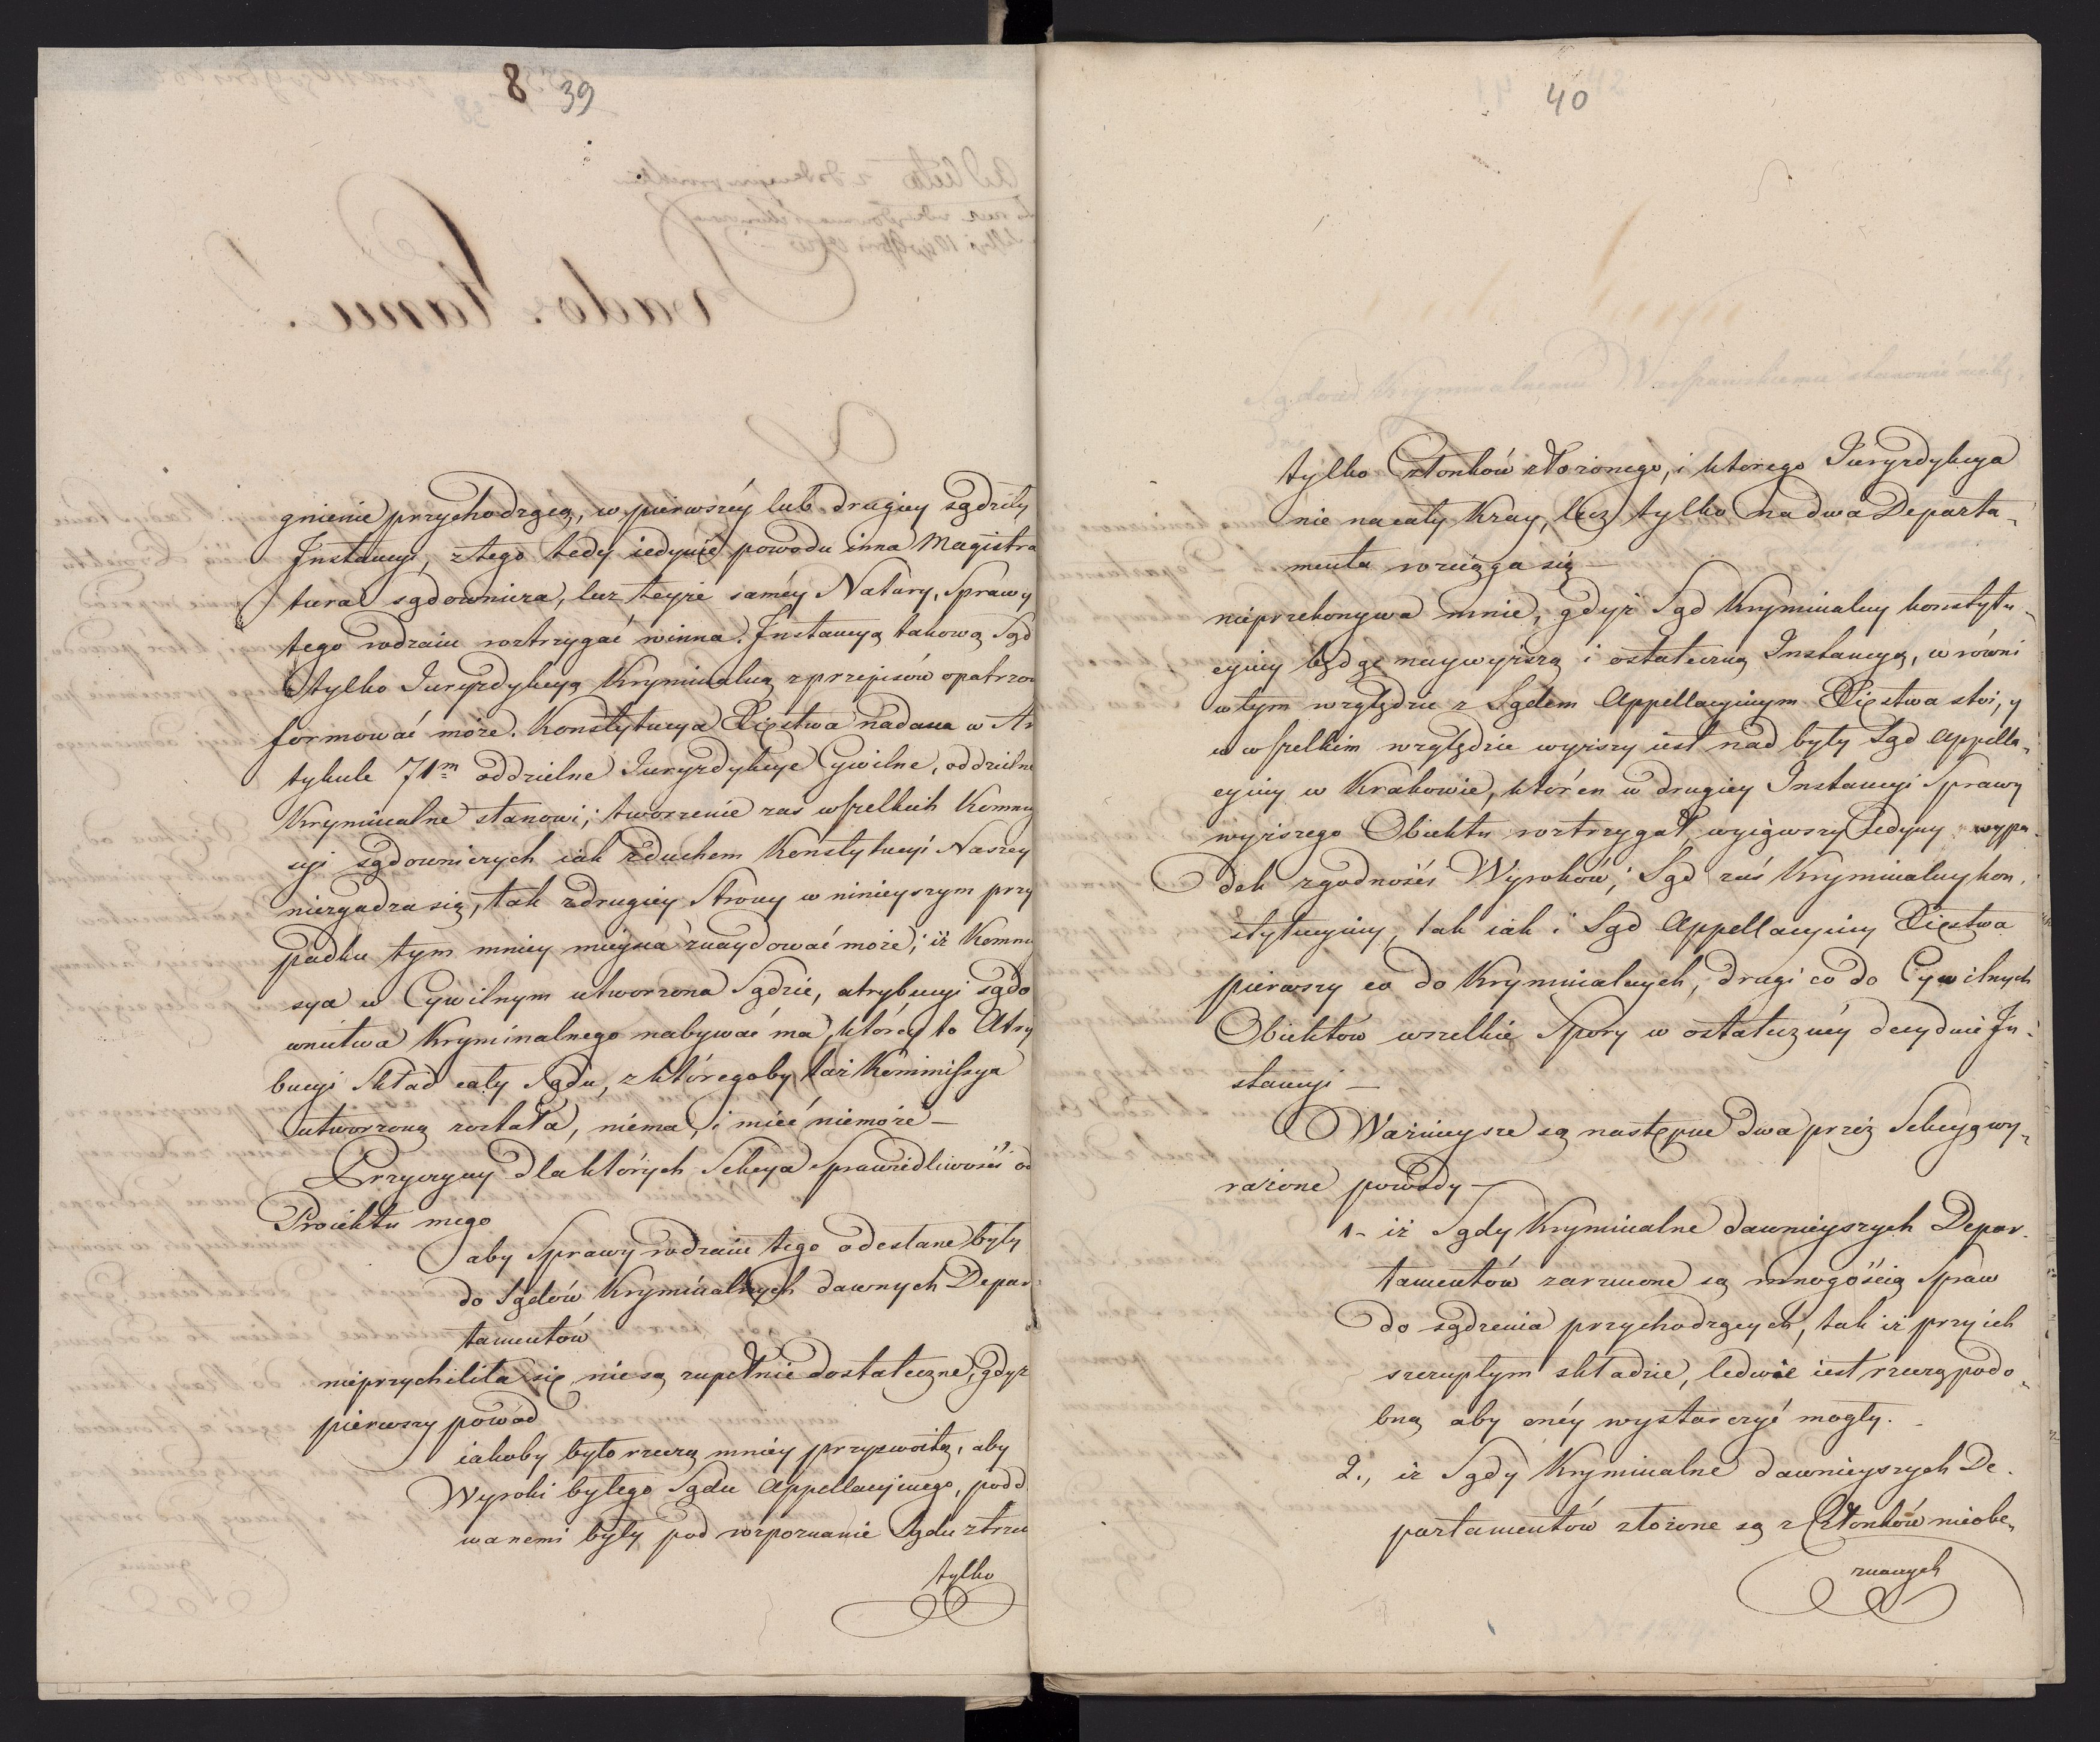 8 39
gnienie przychodzącą, w pierwszéy lub drugiey sądziły
Instancyi, z tego tedy iedynie powodu inna Magistra
tura sądownicza, lecz teyże saméy Natury, Sprawy
tego rodzaiu roztrzygać winna. Instancyą takową Sąd
tylko Juryzdykcyą Kryminalną z przepisów opatrzon
formować może. Konstytucya Xięstwa nadana w Ar
tykule 71m oddzielne Juryzdykcye Cywilne, oddzielne
Kryminalne stanowi; tworzenie zaś wszelkich Kommis
syi sądowniczych iak z duchem Konstytucyi Naszey
niezgadza się, tak z drugiey Strony w ninieyszym przy
padku tym mniey mieysca znaydować może; iż Kommis
sya w Cywilnym utworzona Sądzie, atrybucyi sądo
wnictwa Kryminalnego nabywać ma, któréy to Atry
bucyi Skład cały Sądu, z którégoby taż Kommissya
utworzoną została, niema, i mieć niemoże —
Przyczyny dla których Sekcya Sprawiedliwości od
Proiektu mego
aby Sprawy rodzaiu tego odesłane były
do Sądów Kryminalnych dawnych Depar
tamentów
nieprzychiliła się nie są zupełnie dostateczne, gdyż
pierwszy powód
iakoby było rzeczą mniey przyzwoitą, aby
Wyroki byłego Sądu Appellacyinego, podd
wanemi były pod rozpoznanie Sądu z trzech
tylko
40
tylko Członków złożonego, i ktorego Juryzdykcya
nie na cały Kray, lecz tylko na dwa Departa-
menta rozciąga się —
nieprzekonywa mnie, gdyż Sąd Kryminalny konstytu-
cyiny będąc naywyższą i ostateczną Instancyą, w równi
w tym względzie z Sądem Appellacyinym Xięstwa stoi, y
w wszelkim względzie wyższy iest nad były Sąd Appella-
cyiny w Krakowie, któren w drugiey Instancyi Sprawy
wyższego Obiektu roztrzygał, wyiąwszy iedyny wypa-
dek zgodności Wyroków; Sąd zaś Kryminalny kon-
stytucyiny, tak iak i Sąd Appellacyiny Xięstwa
pierwszy co do Kryminalnych, drugi co do Cywilnych
Obiektów wszelkie Spory w ostateczney decyduie In-
stancyi —
Ważnieysze są następne dwa przez Sekcyą wy-
rażone powody —
1- iż Sądy Kryminalne dawnieyszych Depar-
tamentów zarzucone są mnogością Spraw
do sądzenia przychodzących, tak iż przy ich
szczupłym składzie, ledwie iest rzeczą podo-
bną aby onéy wystarczyć mogły. -
2., iż Sądy Kryminalne dawnieyszych De-
partamentów złożone są z Członków nieobe-
znanych